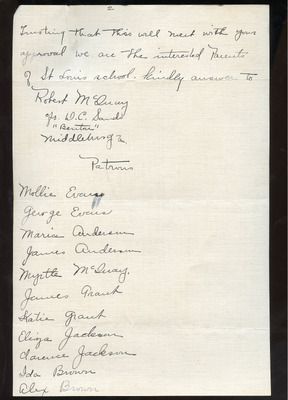 2
Trusting that this will meet with your
approval we are the interested Parents
of St Louis school. Kindly answer to
Robert McQuay
c/o D.C. Sands
"Benton"
Middleburg Va.
Patrons
Mollie Evans
George Evans
Maria Anderson
James Anderson
Myrtle McQuay.
James Grant
Katie Grant
Eliza Jackson
Clarence Jackson
Ida Brown
Alex Brown